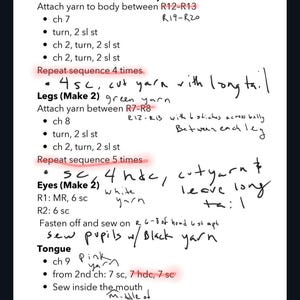 Attach yarn to body between R12-R13
R19-R20
• ch 7
• turn, 2 sl st
• ch 2, turn, 2 sl st
• ch 2, turn, 2 sl st
Repeat sequence 4 times.
• 4 sc, cut yarn with long tail
Legs (Make 2) green yarn
Attach yarn between R7-R8
R12-R13 with 6 stitches across belly
Between each leg
• ch 8
• turn, 2 sl st
• ch 2, turn, 2 sl st
Repeat sequence 5 times.
• sc, 4 hdc, cut yarn &
leave long
tail
Eyes (Make 2) white
yarn
R1: MR, 6 sc
R2: 6 sc
Fasten off and sew on R 6-8 of head 6 st apt
sew pupils w/ Black yarn
Tongue
• ch 9 pink
yarn
• from 2nd ch: 7 sc, 7 hdc, 7 sc
• Sew inside the mouth
middle of